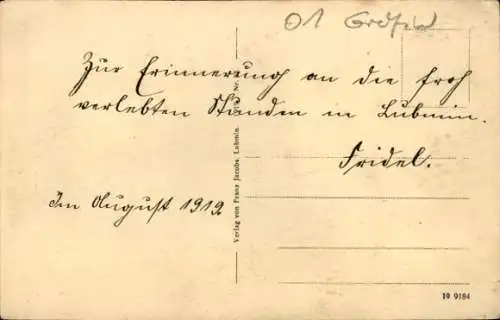 01
Zur Erinnerung an die froh
verlebten Stunden in Lubmin.
Fridel.
Im August 1919
Verlag von Franz Jacobs, Lubmin. Nr.
19 9184